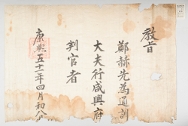 教旨
鄭赫先為通訓
大夫行咸興府
判官者
康熙五十一年四月初八